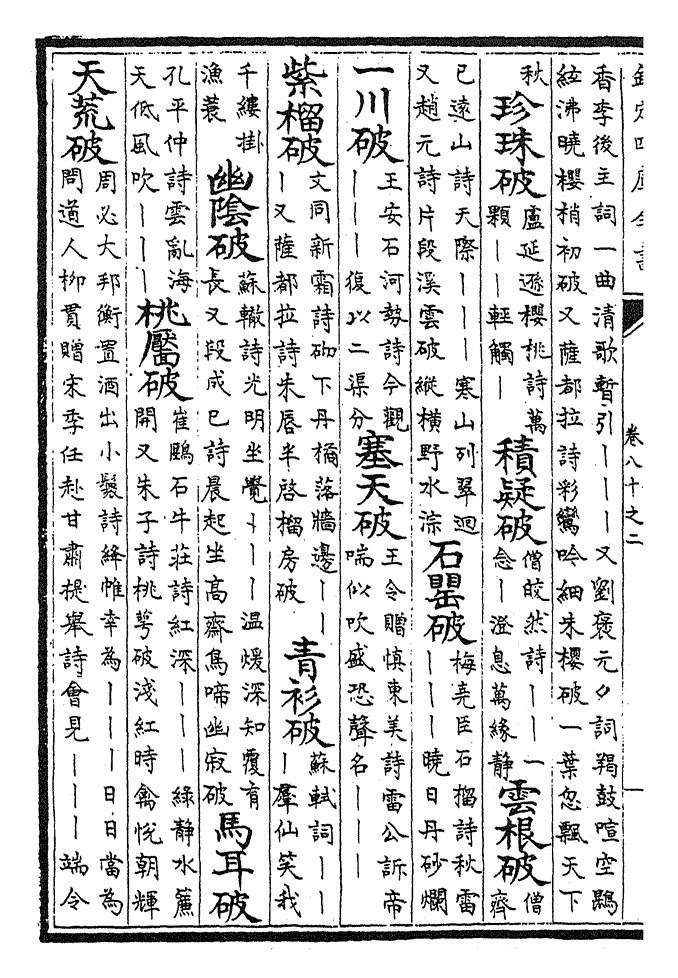 欽定四庫全書 卷八十之二
香李後主詞一曲清歌暫引丨丨丨又劉褒元夕詞羯鼓喧空鵾
絃沸曉櫻梢初破又薩都拉詩彩鸞吟細朱櫻破一葉忽飄天下
秋 珍珠破 盧延遜櫻桃詩萬顆丨丨輕觸丨 積疑破 僧皎然詩丨丨一念丨澄息萬緣静 雲根破 僧齊
已遠山詩天際丨丨丨寒山列翠迴又趙元詩片段溪雲破縱横野水淙 石罌破 梅堯臣石榴詩秋雷丨丨丨曉日丹砂爛
一川破 王安石河勢詩今觀丨丨丨復以二渠分 塞天破 王令贈慎東美詩雷公訴帝喘似吹盛恐聲名丨丨丨
紫榴破 文同新霜詩砌下丹橘落牆邊丨丨丨又薩都拉詩朱唇半啓榴房破 青衫破 蘇軾詞丨丨丨羣仙笑我
千縷掛漁蓑 幽陰破 蘇轍詩光明坐覺丨丨丨温煖深知覆育長又段成已詩晨起坐高齋鳥啼幽寂破 馬耳破
孔平仲詩雲亂海天低風吹丨丨丨 桃靨破 崔鷗石牛莊詩紅深丨丨丨緑静水簾開又朱子詩桃萼破淺紅時禽悦朝輝
天荒破 周必大邦衡置酒出小鬟詩絳帷幸為丨丨丨日日當為問道人栁貫贈宋季任赴甘肅提舉詩會見丨丨丨端令